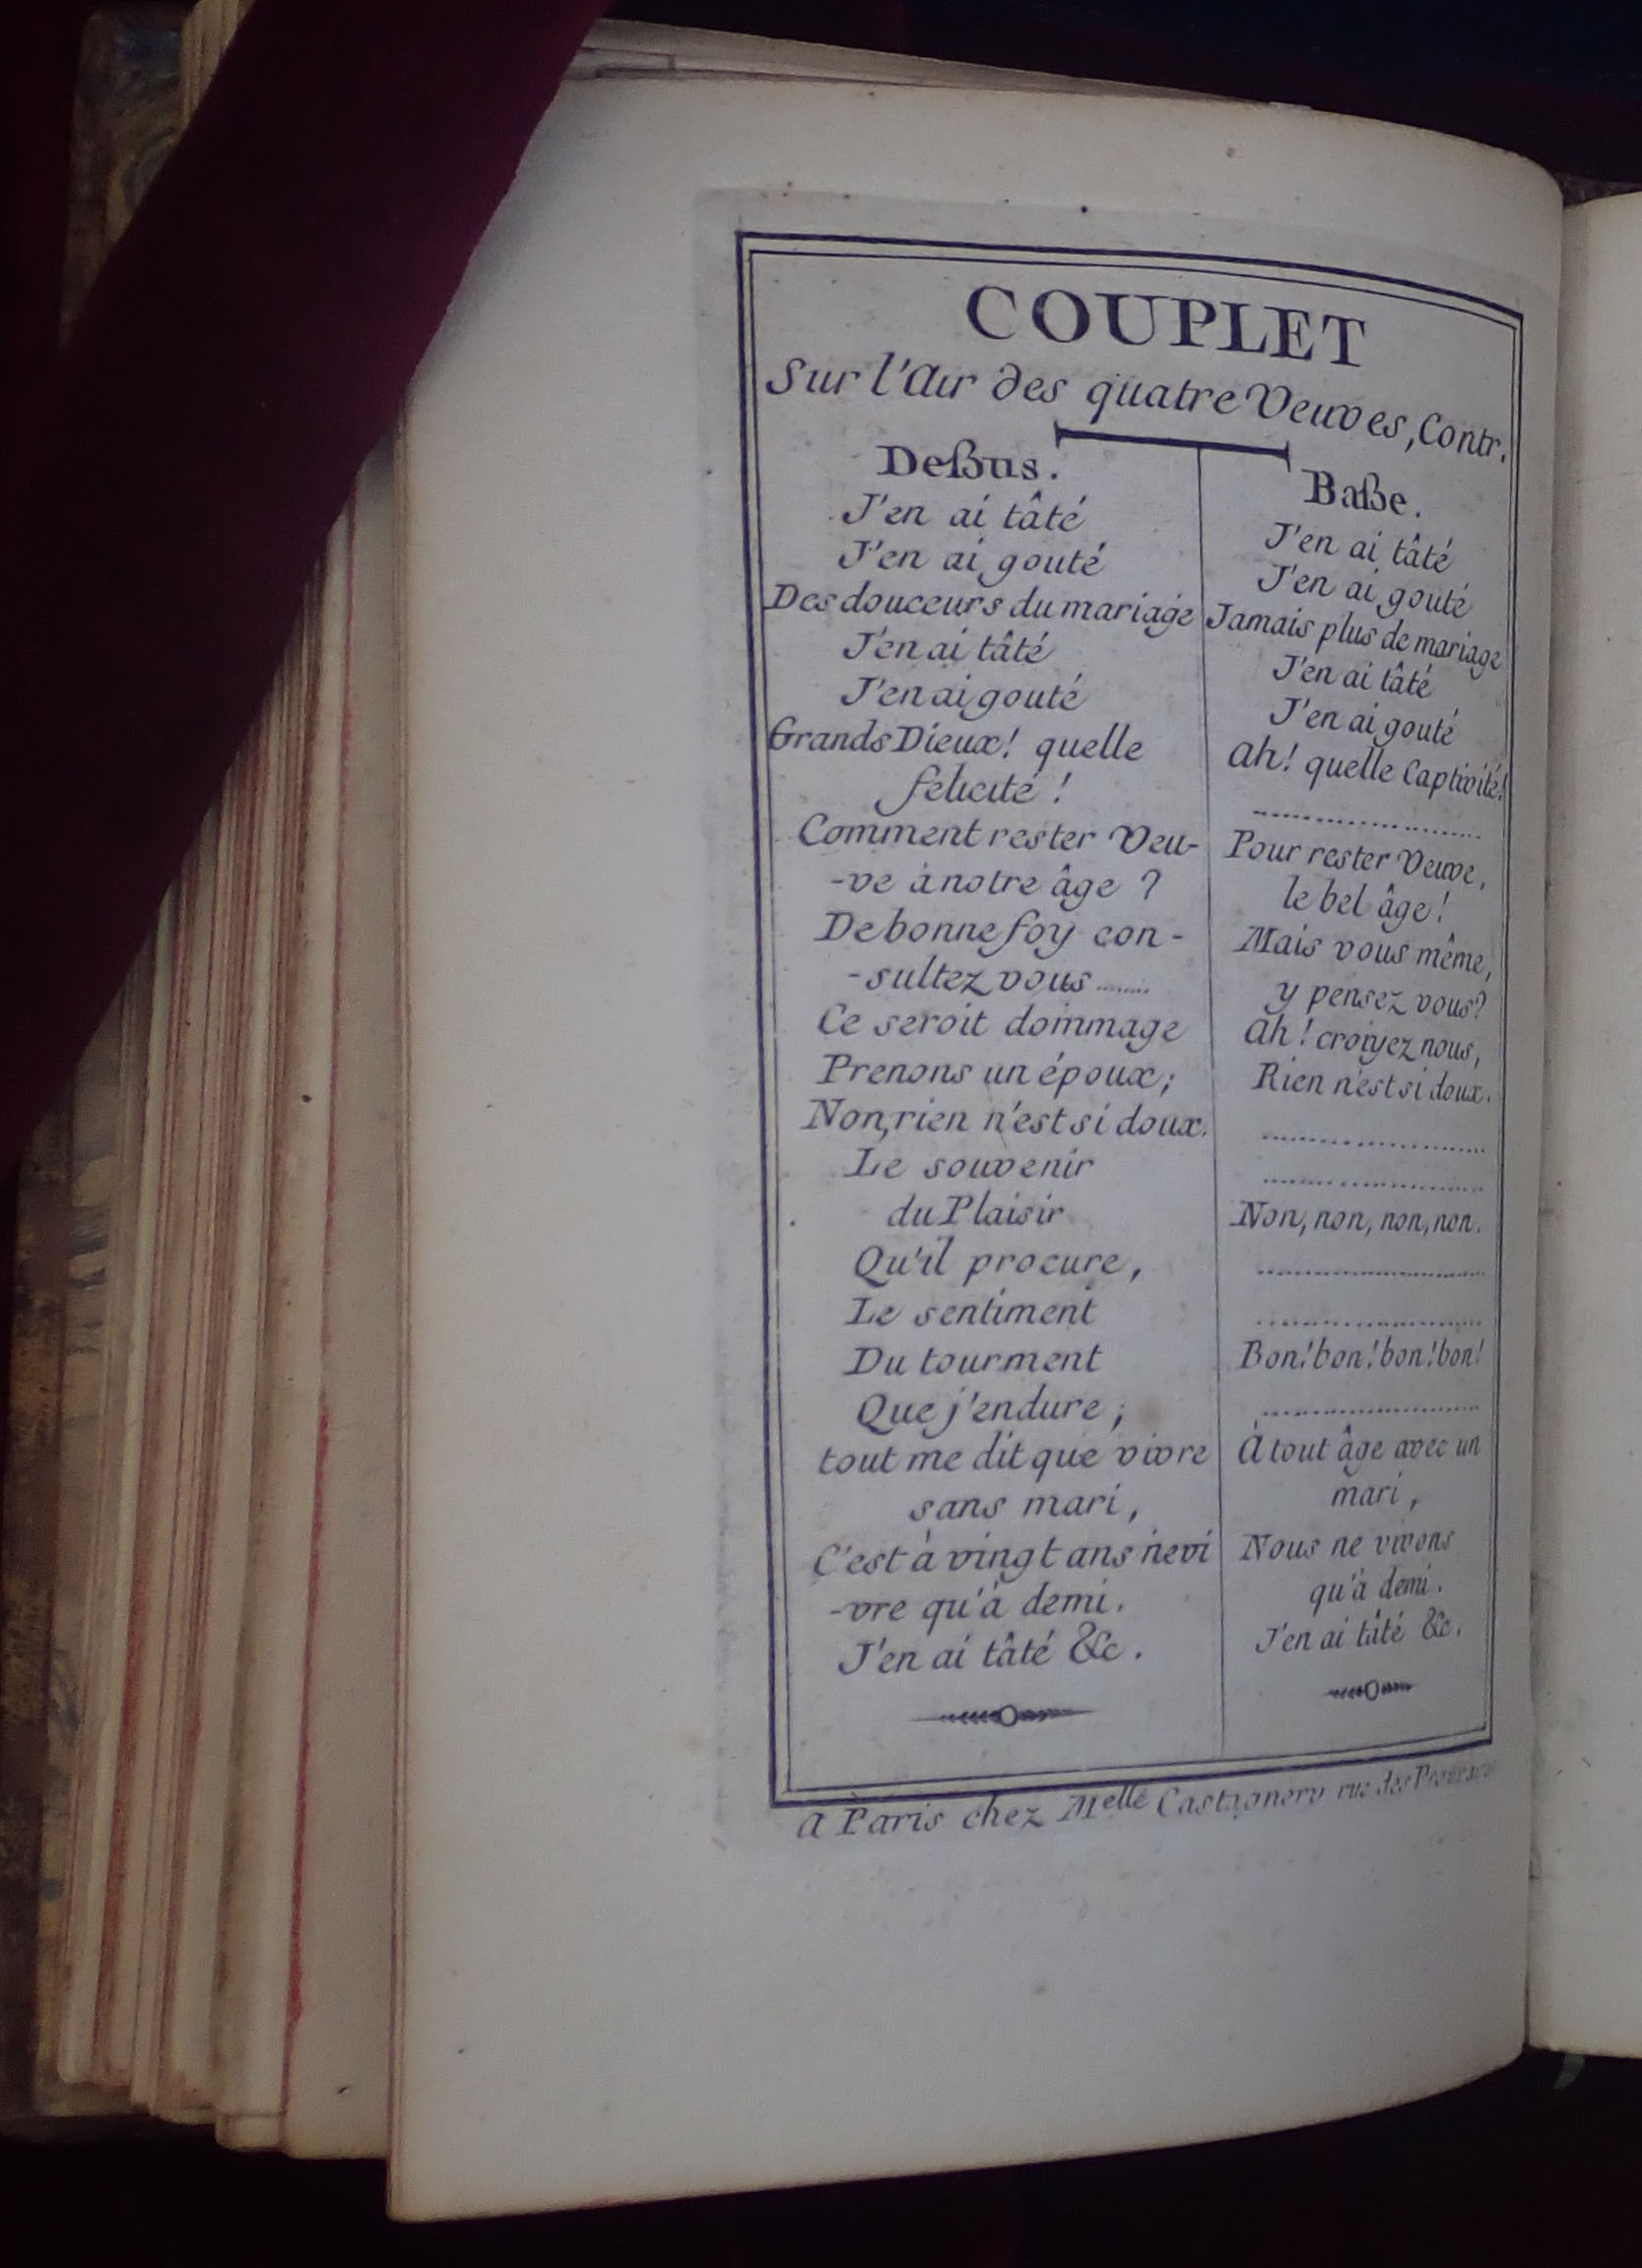 COUPLET
Sur l'Air des quatre Veuves, Contr.
Deßus.
J'en ai tâté
J'en ai gouté
Des douceurs du mariage
J'en ai tâté
J'en ai gouté
Grands Dieux! quelle
felicité!
Comment rester Veu-
-ve à notre âge ?
De bonne foy con-
-sultez vous ........
Ce seroit dommage
Prenons un époux;
Non, rien n'est si doux.
Le souvenir
du Plaisir
Qu'il procure,
Le sentiment
Du tourment
Que j'endure ;
tout me dit que vivre
sans mari,
C'est à vingt ans ne vi
-vre qu'à demi.
J'en ai tâté &c.
Baße.
J'en ai tâté
J'en ai gouté
Jamais plus de mariage
J'en ai tâté
J'en ai gouté
Ah! quelle Captivité!
......................
Pour rester Veuve,
le bel âge!
Mais vous même,
y pensez vous?
Ah! croiyez nous,
Rien n'est si doux.
......................
......................
Non, non, non, non.
......................
......................
Bon! bon! bon! bon!
......................
À tout âge avec un
mari,
Nous ne vivons
qu'à demi.
J'en ai tâté &c.
A Paris chez Melle Castagnery rue des